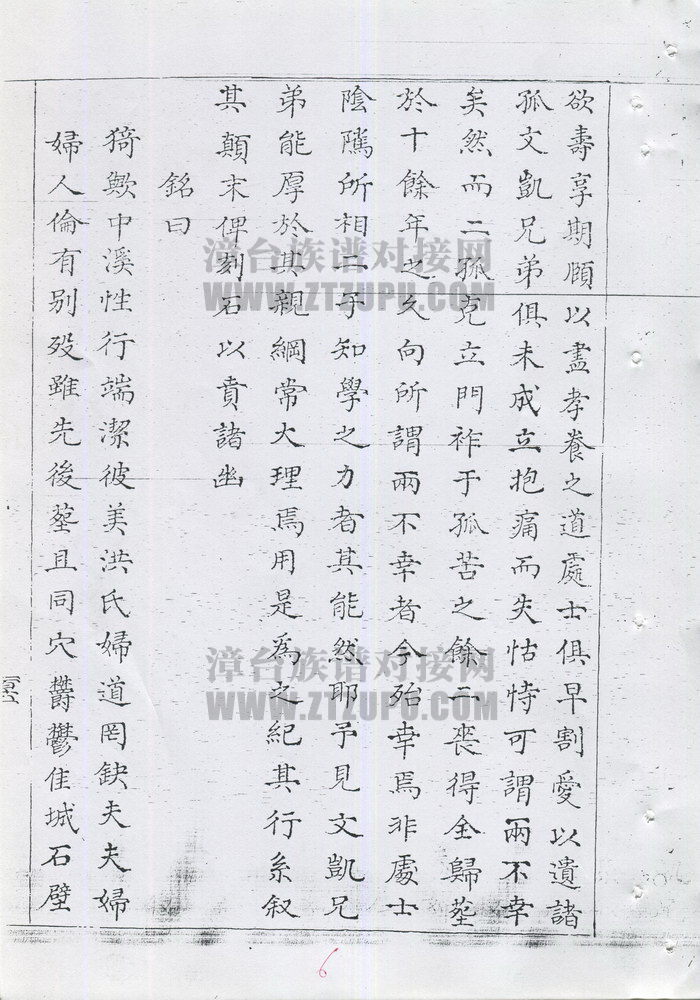 欲壽享期頤以盡孝養之道處士俱早割愛以遺諸
孤文凱兄弟俱未成立抱痛而失怙恃可謂兩不幸
矣然而二孤克立門祚于孤苦之餘二喪得全歸塟
於十餘年之久向所謂兩不幸者今殆幸焉非處士
陰隲所相二子知學之力者其能然耶予見文凱兄
弟能厚於其親綱常大理焉用是為之紀其行系叙
其顛末俾刻石以賁諸幽
銘曰
猗歟中溪性行端潔彼美洪氏婦道罔缺夫夫婦
婦人倫有別歿雖先後塟且同穴欝鬱佳城石壁
漳台族谱对接网
WWW.ZTZUPU.COM
漳台族谱对接网
WWW.ZTZUPU.COM
6